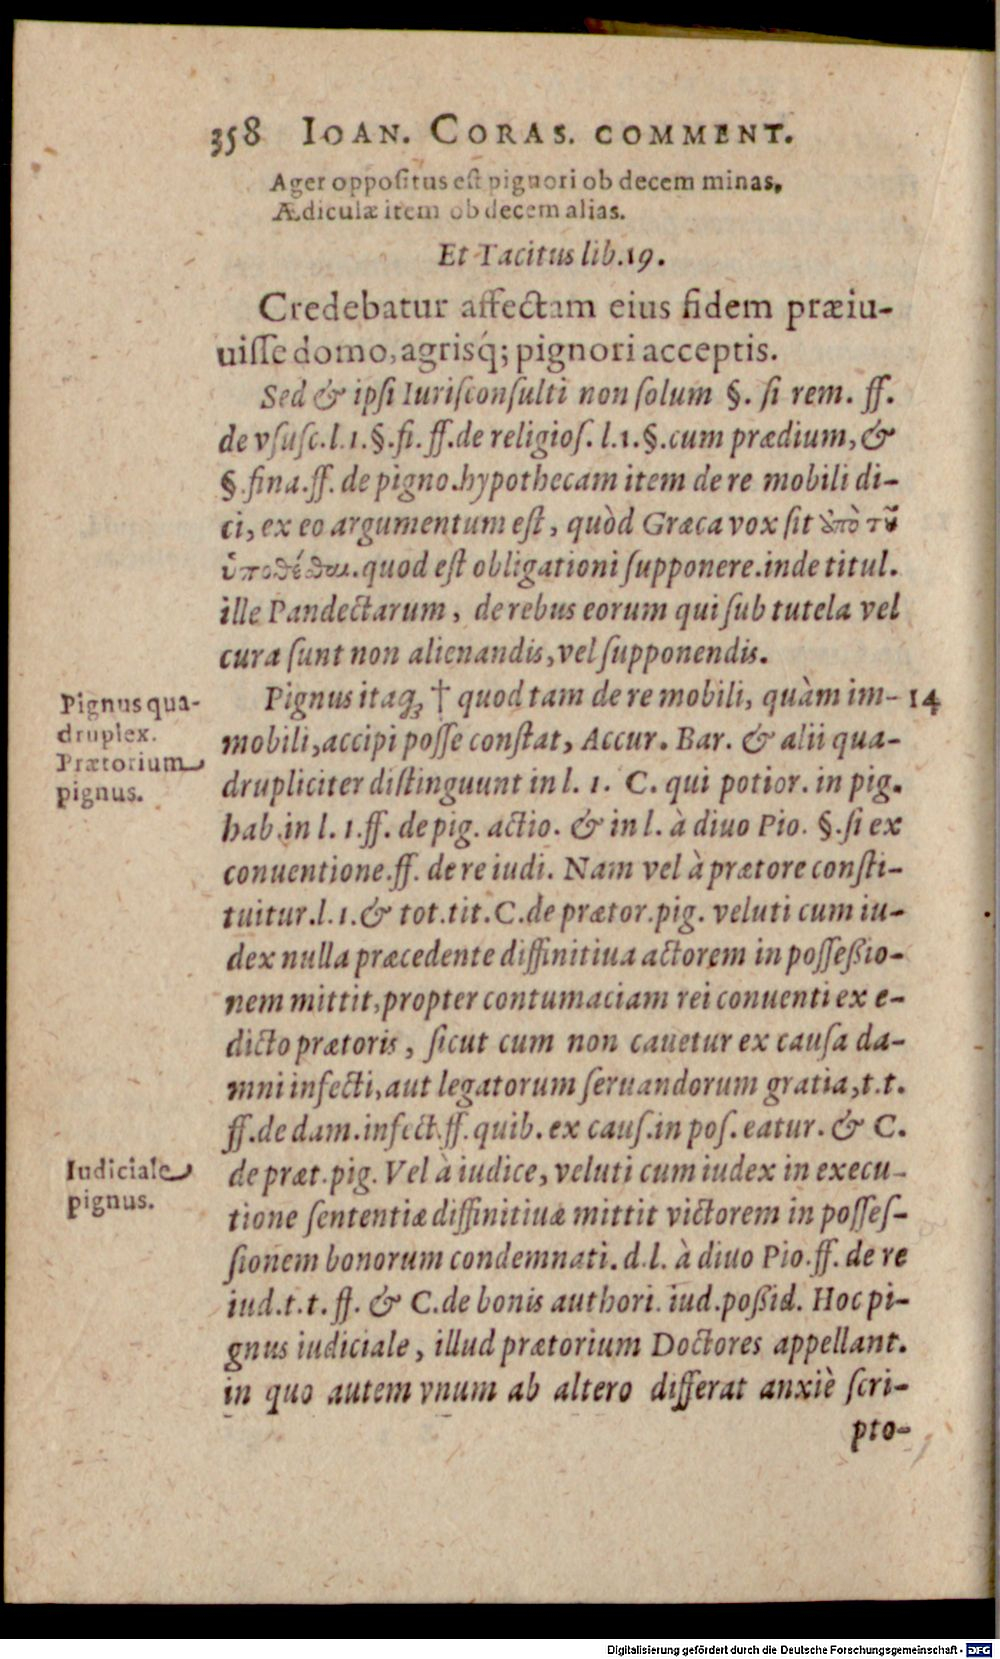 358 IOAN. CORAS. COMMENT.
Ager oppositus est pignori ob decem minas,
Ædiculæ item ob decem alias.
Et Tacitus lib.19.
Credebatur affectam eius fidem præiu-
uisse domo, agrisq́; pignori acceptis.
Sed & ipsi Iurisconsulti non solum §. si rem. ff.
de vsusc.l.1.§.fi.ff.de religios. l.1.§.cum prædium, &
§.fina.ff. de pigno.hypothecam item de re mobili di-
ci, ex eo argumentum est, quòd Græca vox sit ὑπὸ τοῦ
ὑποθέσθαι.quod est obligationi supponere.inde titul.
ille Pandectarum, de rebus eorum qui sub tutela vel
cura sunt non alienandis, vel supponendis.
Pignus itaq; † quod tam de re mobili, quàm im- 14
Pignus qua-
druplex.
Prætorium
pignus.
mobili, accipi posse constat, Accur. Bar. & alii qua-
drupliciter distinguunt in l. 1. C. qui potior. in pig.
hab.in l. 1.ff. de pig. actio. & in l. à diuo Pio. §.si ex
conuentione.ff. de re iudi. Nam vel à prætore consti-
tuitur.l.1.& tot.tit.C.de prætor.pig. veluti cum iu-
dex nulla præcedente diffinitiua actorem in possessio-
nem mittit, propter contumaciam rei conuenti ex e-
dicto prætoris, sicut cum non cauetur ex causa da-
mni infecti, aut legatorum seruandorum gratia, t.t.
ff.de dam.infect.ff.quib.ex caus.in pos.eatur. & C.
Iudiciale
pignus.
de præt.pig. Vel à iudice, veluti cum iudex in execu-
tione sententiæ diffinitiuæ mittit victorem in posses-
sionem bonorum condemnati. d.l. à diuo Pio.ff. de re
iud.t.t. ff. & C.de bonis authori. iud.possid. Hoc pi-
gnus iudiciale, illud prætorium Doctores appellant.
in quo autem vnum ab altero differat anxiè scri-
pto-
Digitalisierung gefördert durch die Deutsche Forschungsgemeinschaft - DFG